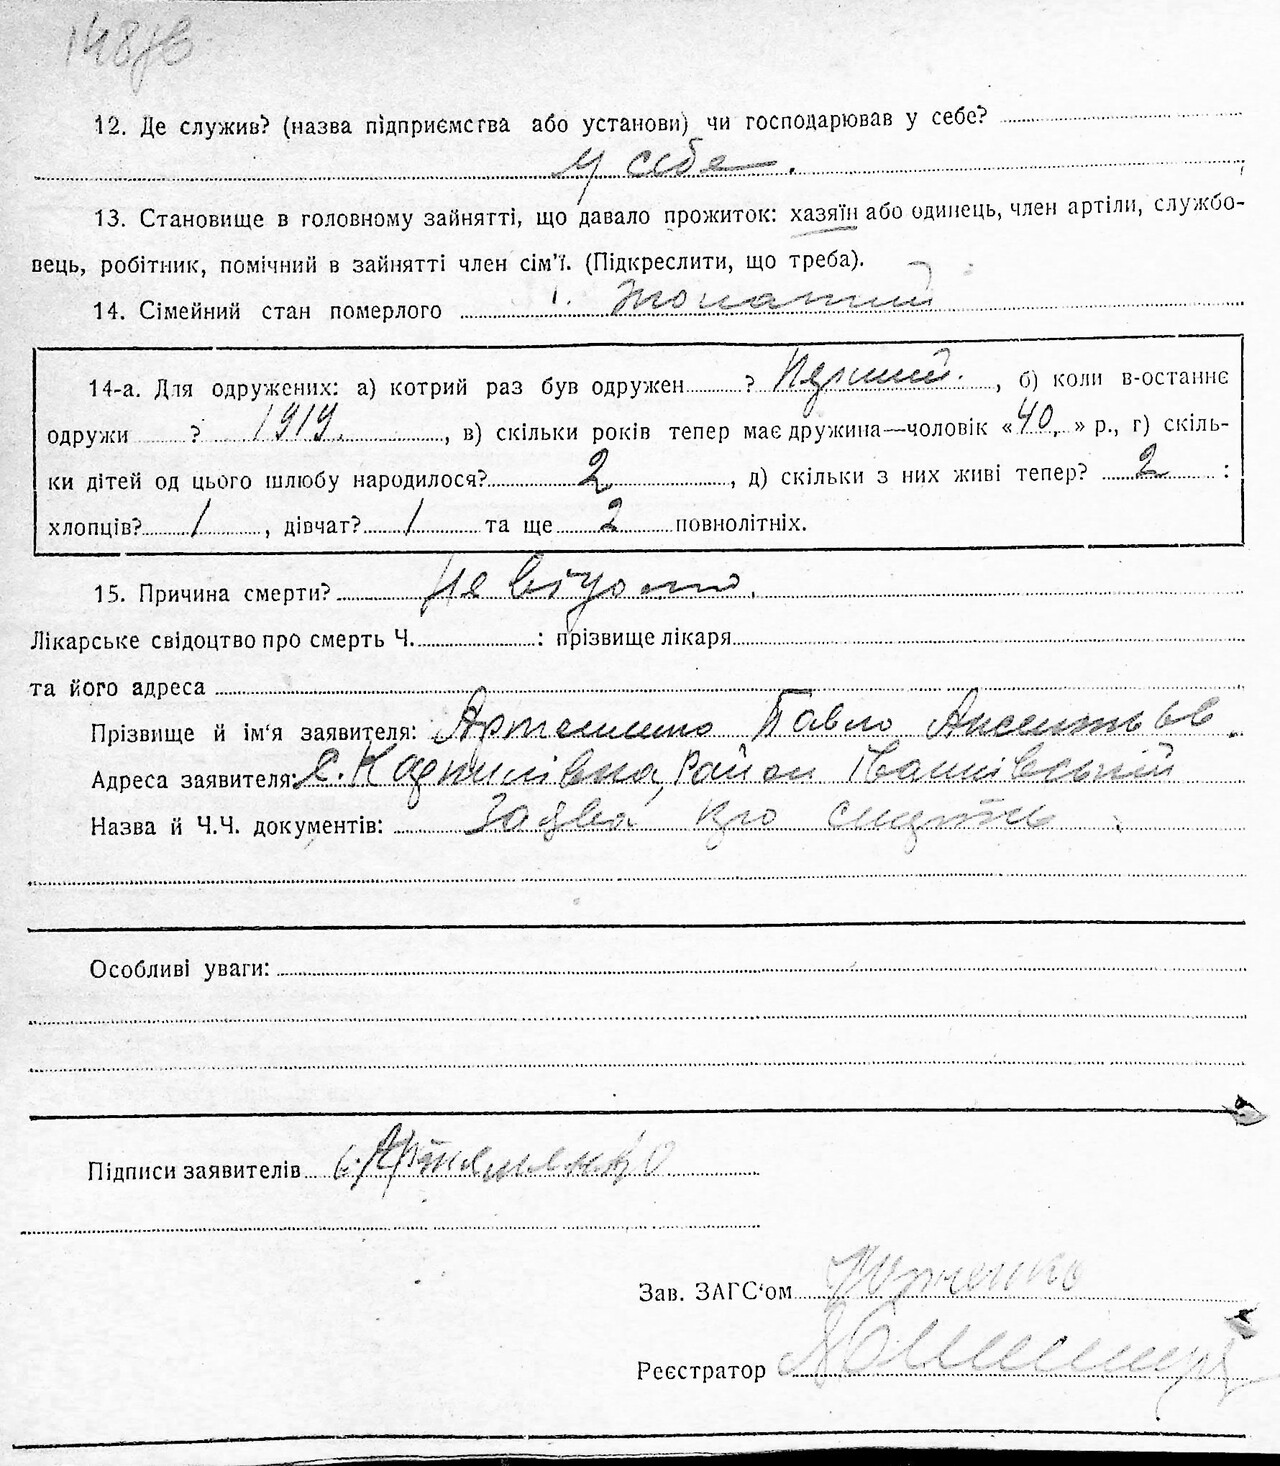 148
12. Де служив? (назва підприємства або установи) чи господарював у себе?
У себе.
13. Становище в головному зайнятті, що давало прожиток: хазяїн або одинець, член артіли, службо-
вець, робітник, помічний в зайнятті член сім'ї. (Підкреслити, що треба).
14. Сімейний стан померлого Жонатий
14-а. Для одружених: а) котрий раз був одружен ? Перший. , б) коли в-останнє
одружи ? 1919. , в) скільки років тепер має дружина—чоловік «40.» р., г) скіль-
ки дітей од цього шлюбу народилося? 2 , д) скільки з них живі тепер? 2 :
хлопців? 1 , дівчат? 1 та ще 2 повнолітніх.
15. Причина смерти? Не відомо.
Лікарське свідоцтво про смерть Ч. : прізвище лікаря
та його адреса
Прізвище й ім'я заявителя: Артеменко Павло
Адреса заявителя: с. район Іванківський
Назва й Ч.Ч. документів: Заява про смерть
Особливі уваги:
Підписи заявителів Артеменко
Зав. ЗАГС'ом
Реєстратор